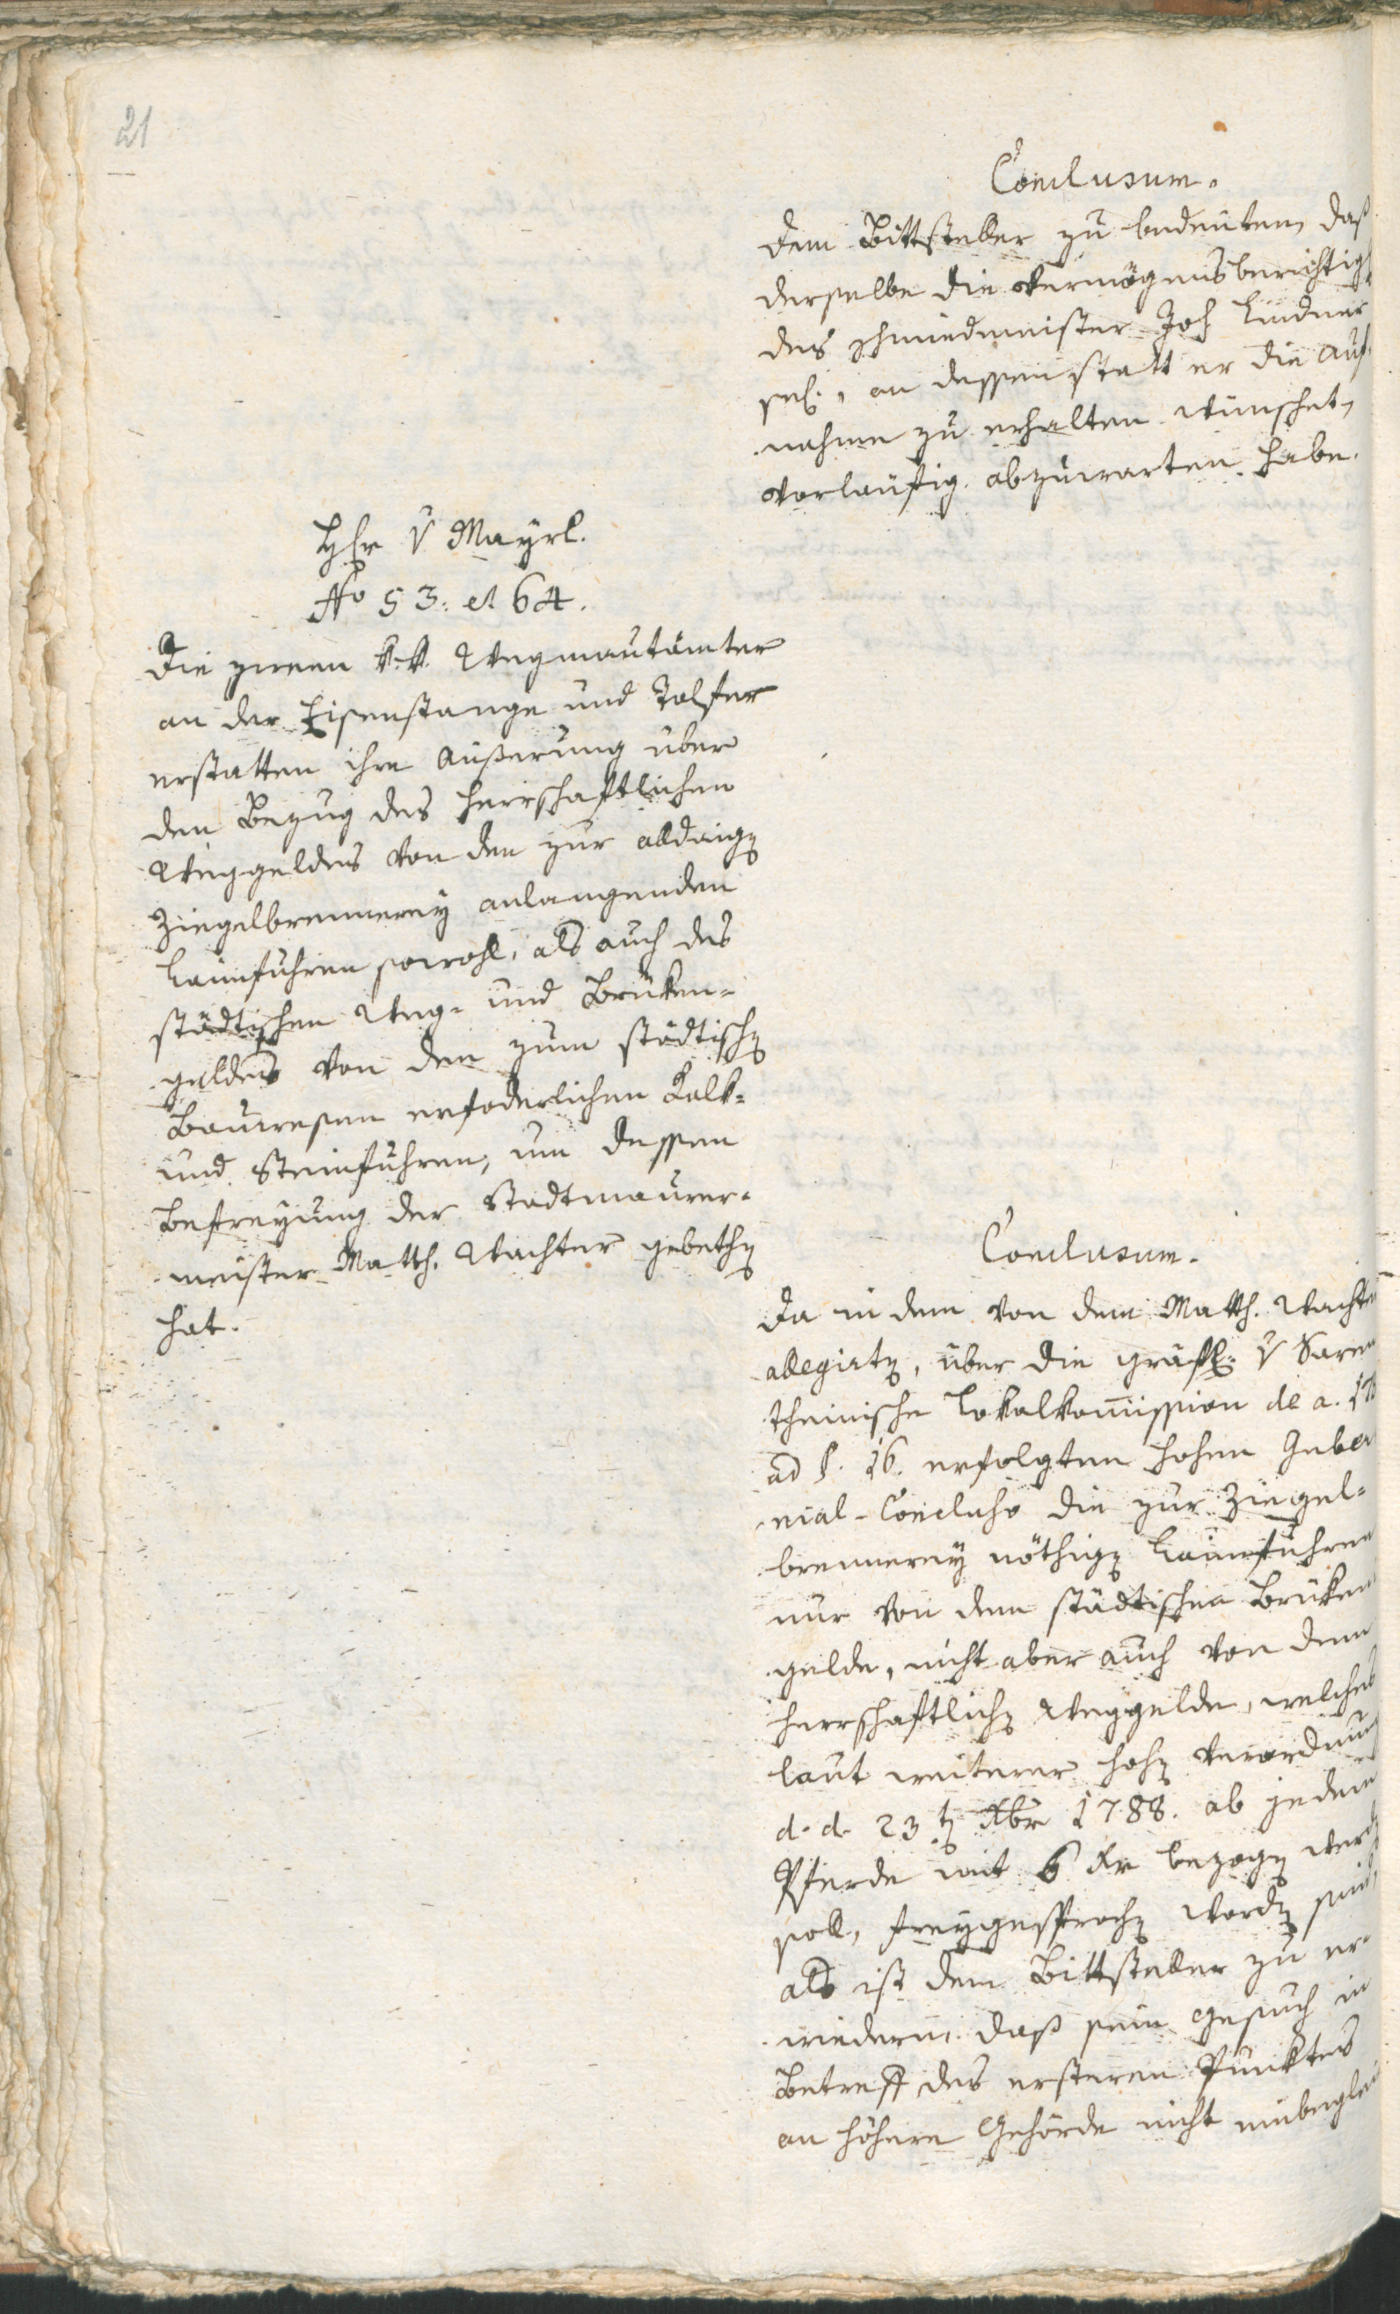 21
Conclusum.
Dem Bittsteller zu bedeuten, daß
derselbe die Vermögensberichtig
des Schmiedmeister Joh Lindner
sel., an dessen statt er die Auf-
nahme zu erhalten wünschet,
vorläufig abzuwarten habe.
Hhr v Mayrl.
No 53: et 64.
Die zween k.k. Wegmautämter
an der Eisenstange und Talfer
erstatten ihre Äußerung über
den Bezug des herrschaftlichen
Weggeldes von den zur alldaig
Ziegelbrennerey anlangenden
Laimfuhren sowohl, als auch des
städtischen Weg- und Brüken-
geldes von den zum städtisch
Bauwesen erfoderlichen Kalk-
und Steinfuhren, um dessen
Befreyung der Stadtmaurer-
meister Matth. Wachter gebeth
hat.
Conclusum.
Da in dem von dem Matth. Wachter
allegirt, über die gräfl. v Saren
theinische Lokalkommission de a. 178
ad §. 16. erfolgten hohen Guber
nial-Concluso die zur Ziegel-
brennerey nöthig Laimfuhren
nur von dem städtischen Brüken
gelde, nicht aber auch von dem
herrschaftlich Weggelde, welches
laut weiterer hoh Verordnung
d. d. 23t Xbr 1788. ab jedem
Pferde mit 6 Kr bezog werd
soll, freygesproch word sind,
als ist dem Bittsteller zu er-
wiedern, daß sein Gesuch in
Betreff des ersteren Punktes
an höhere Behörde nicht einbeglei